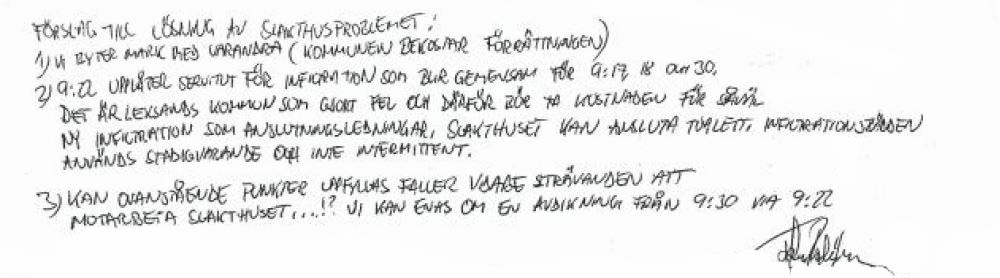 FÖRSLAG TILL LÖSNING AV SLAKTHUSPROBLEMET:
1) VI BYTER MARK MED VARANDRA (KOMMUNEN BEKOSTAR FÖRRÄTTNINGEN)
2) 9:22 UPPLÅTER SERVITUT FÖR INFILTRATION SOM BLIR GEMENSAM FÖR 9:17, 18 OCH 30.
DET ÄR LEKSANDS KOMMUN SOM GJORT FEL OCH DÄRFÖR BÖR TA KOSTNADEN FÖR SÅVÄL
NY INFILTRATION SOM ANSLUTNINGSLEDNINGAR, SLAKTHUSET KAN ANSLUTA TOALETT, INFILTRATIONSBÄDDEN
ANVÄNDS STADIGVARANDE OCH INTE INTERMITTENT.
3) KAN OVANSTÅENDE PUNKTER UPPFYLLAS FALLER VIDARE STRÄVANDEN ATT
MOTARBETA SLAKTHUSET....!? VI KAN ENAS OM EN AVDIKNING FRÅN 9:30 VIA 9:22